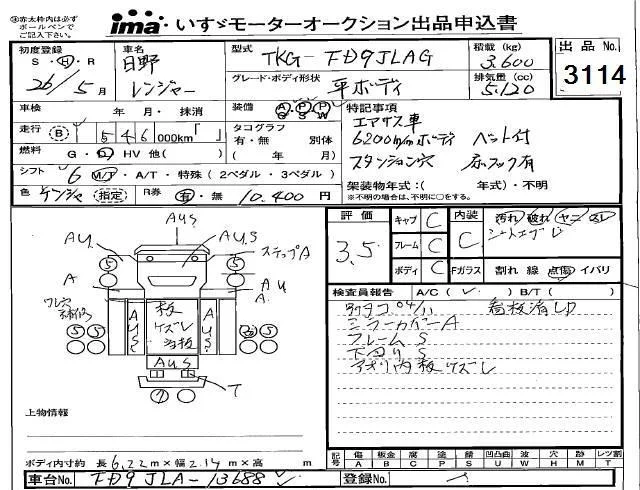 ※赤太枠内は必ず
ボールペンで
ご記入下さい。
ima・いすゞモーターオークション出品申込書
初度登録
S・H・R
26/5月
車名
日野
レンジャー
型式
TKG-FD9JLAG
グレード・ボディ形状
平ボディ
積載(kg)
3,600
排気量(cc)
5,120
出品No.
3114
車検 年・月・抹消
走行 B 1546000km「 」
燃料 G・D・HV 他( )
シフト 6 M/T・A/T・特殊(2ペダル・3ペダル)
色 ケンジャ 指定
R券 有・無 10,400円
装備 A/C P/S P/W
タコグラフ
有・無 別体
( 年 月)
特記事項
エアサス車
6200mmボディ ベット付
スタンション穴 床フック有
架装物年式:( 年式)・不明
※不明の場合は、不明に○をする。
AUS
AU
AUS
ステップA
A
AU
A
AUS
板
ケズレ
AUS
AUS
T
上物情報
ボディ内寸約 長6.22m×幅2.14m×高 m
車台No. FD9JLA-13688
評価
3.5
キャブ C
フレーム C
ボディ C
内装
C
汚れ 破れ ヤニ
Fガラス 割れ 線 点傷 イパリ
検査員報告 A/C( ) B/T( )
看板消し
ミラーカバーA
フレームS
下回りS
アオリ内板ケズレ
記号 傷A 板金B 腐C 塗P 錆S 凹凸凹U 波W 穴H 跡M レンズ割T
登録No.